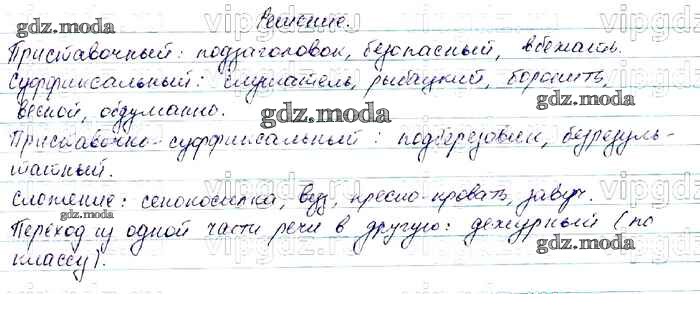 Решение.
Приставочный: подзаголовок, безопасный, вбежать.
Суффиксальный: слушатель, рыбацкий, боронить,
весной, обдуманно.
Приставочно-суффиксальный: подберезовик, безрезуль-
татный.
Сложение: сенокосилка, вуз, кресло-кровать, завуч.
Переход из одной части речи в другую: дежурный (по
классу).
gdz.moda
gdz.moda
gdz.moda
gdz.moda
gdz.moda
gdz.moda
gdz.moda
vipgdz.ru